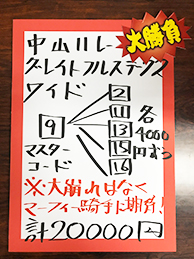 大勝負
中山11レース
グレイトフルステークス
ワイド
9
2
11
13
15
16
各4000円ずつ
マスターコード
※大崩れはなく
マーフィー騎手に期待!
計20000円